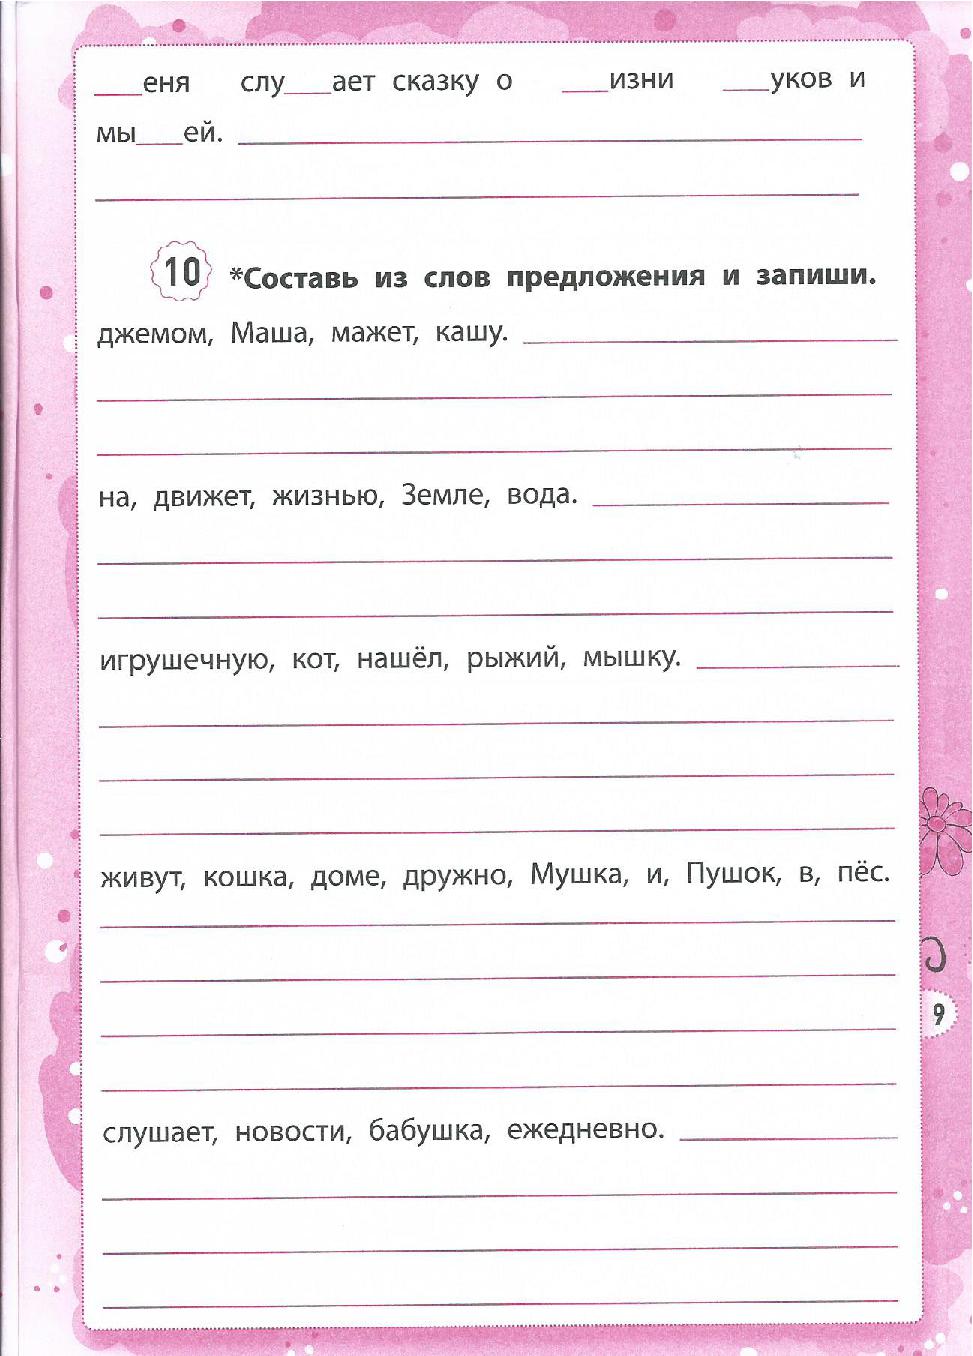 ___еня слу___ает сказку о ___изни ___уков и
мы___ей.
10 *Составь из слов предложения и запиши.
джемом, Маша, мажет, кашу.
на, движет, жизнью, Земле, вода.
игрушечную, кот, нашёл, рыжий, мышку.
живут, кошка, доме, дружно, Мушка, и, Пушок, в, пёс.
9
слушает, новости, бабушка, ежедневно.